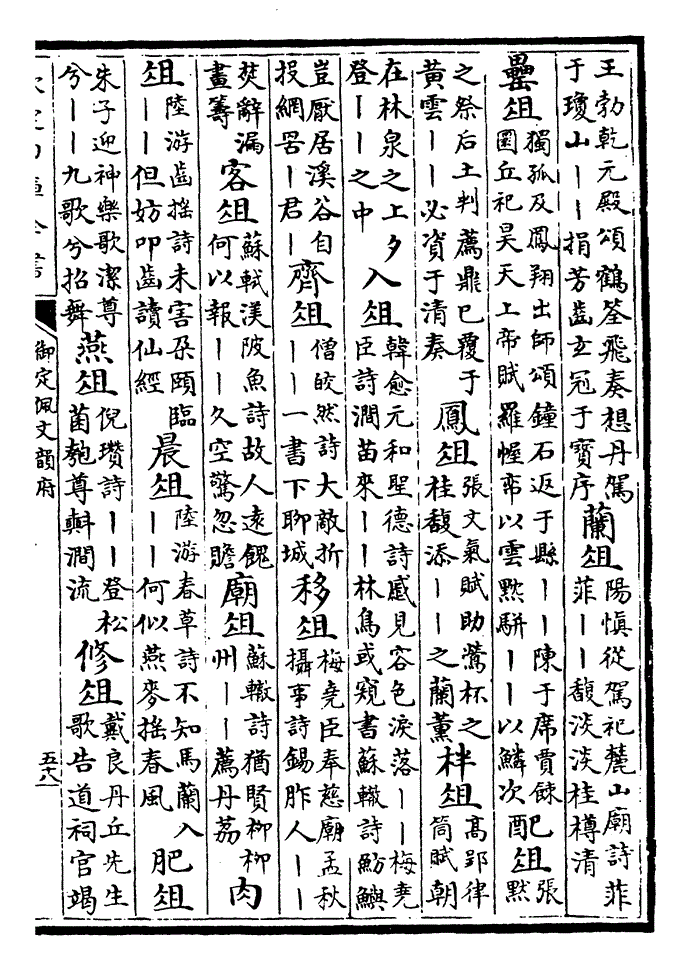 王勃乾元殿頌鶴筌飛奏想丹駕于瓊山丨丨捐芳齒玄冠于寶序蘭俎陽慎從駕祀麓山廟詩菲菲丨丨馥淡淡桂樽清
罍俎獨孤及鳳翔出師頌鐘石返于縣丨丨陳于席賈餗圜丘祀昊天上帝賦羅幄帟以雲㸃駢丨丨以鱗次配俎張黙
之祭后土判薦鼎已覆于黄雲丨丨必資于清奏鳳俎張文氣賦助鶯杯之桂馥添丨丨之蘭薰柈俎高郢律筒賦朝
在林泉之上夕登丨丨之中入俎韓愈元和聖德詩感見容色淚落丨丨梅堯臣詩澗苗來丨丨林鳥或窺書蘇轍詩魴鱮
豈厭居溪谷自投網罟丨君丨齊俎僧皎然詩大敵折丨丨一書下聊城移俎梅堯臣奉慈廟孟秋攝事詩錫胙人丨丨
焚辭漏畫籌客俎蘇軾渼陂魚詩故人遠餽何以報丨丨久空驚忽贍廟俎蘇轍詩猶賢柳柳州丨丨薦丹荔肉
俎陸游齒搖詩未害朶頤臨丨丨但妨叩齒讀仙經晨俎陸游春草詩不知馬蘭入丨丨何似燕麥搖春風肥俎
朱子迎神樂歌潔尊兮丨丨九歌兮招舞燕俎倪瓚詩丨丨登松菌匏尊㪺澗流修俎戴良丹丘先生歌告道祠官竭
欽定四庫全書
御定佩文韻府
五十八